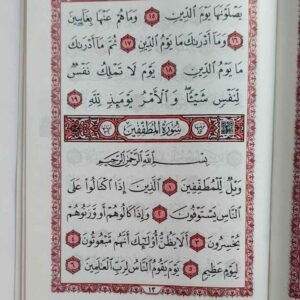 يَصْلَوْنَهَا يَوْمَ الدِّينِ ١٥ وَمَا هُمْ عَنْهَا بِغَائِبِينَ
١٦ وَمَا أَدْرَىٰكَ مَا يَوْمُ الدِّينِ ١٧ ثُمَّ مَا أَدْرَىٰكَ
مَا يَوْمُ الدِّينِ ١٨ يَوْمَ لَا تَمْلِكُ نَفْسٌ
لِنَفْسٍ شَيْئًا وَالْأَمْرُ يَوْمَئِذٍ لِلَّهِ ١٩
سُورَةُ الْمُطَفِّفِينَ
بِسْمِ اللَّهِ الرَّحْمَٰنِ الرَّحِيمِ
وَيْلٌ لِلْمُطَفِّفِينَ ١ الَّذِينَ إِذَا اكْتَالُوا عَلَى
النَّاسِ يَسْتَوْفُونَ ٢ وَإِذَا كَالُوهُمْ أَوْ وَزَنُوهُمْ
يُخْسِرُونَ ٣ أَلَا يَظُنُّ أُولَٰئِكَ أَنَّهُمْ مَبْعُوثُونَ ٤
لِيَوْمٍ عَظِيمٍ ٥ يَوْمَ يَقُومُ النَّاسُ لِرَبِّ الْعَالَمِينَ ٦
١٣